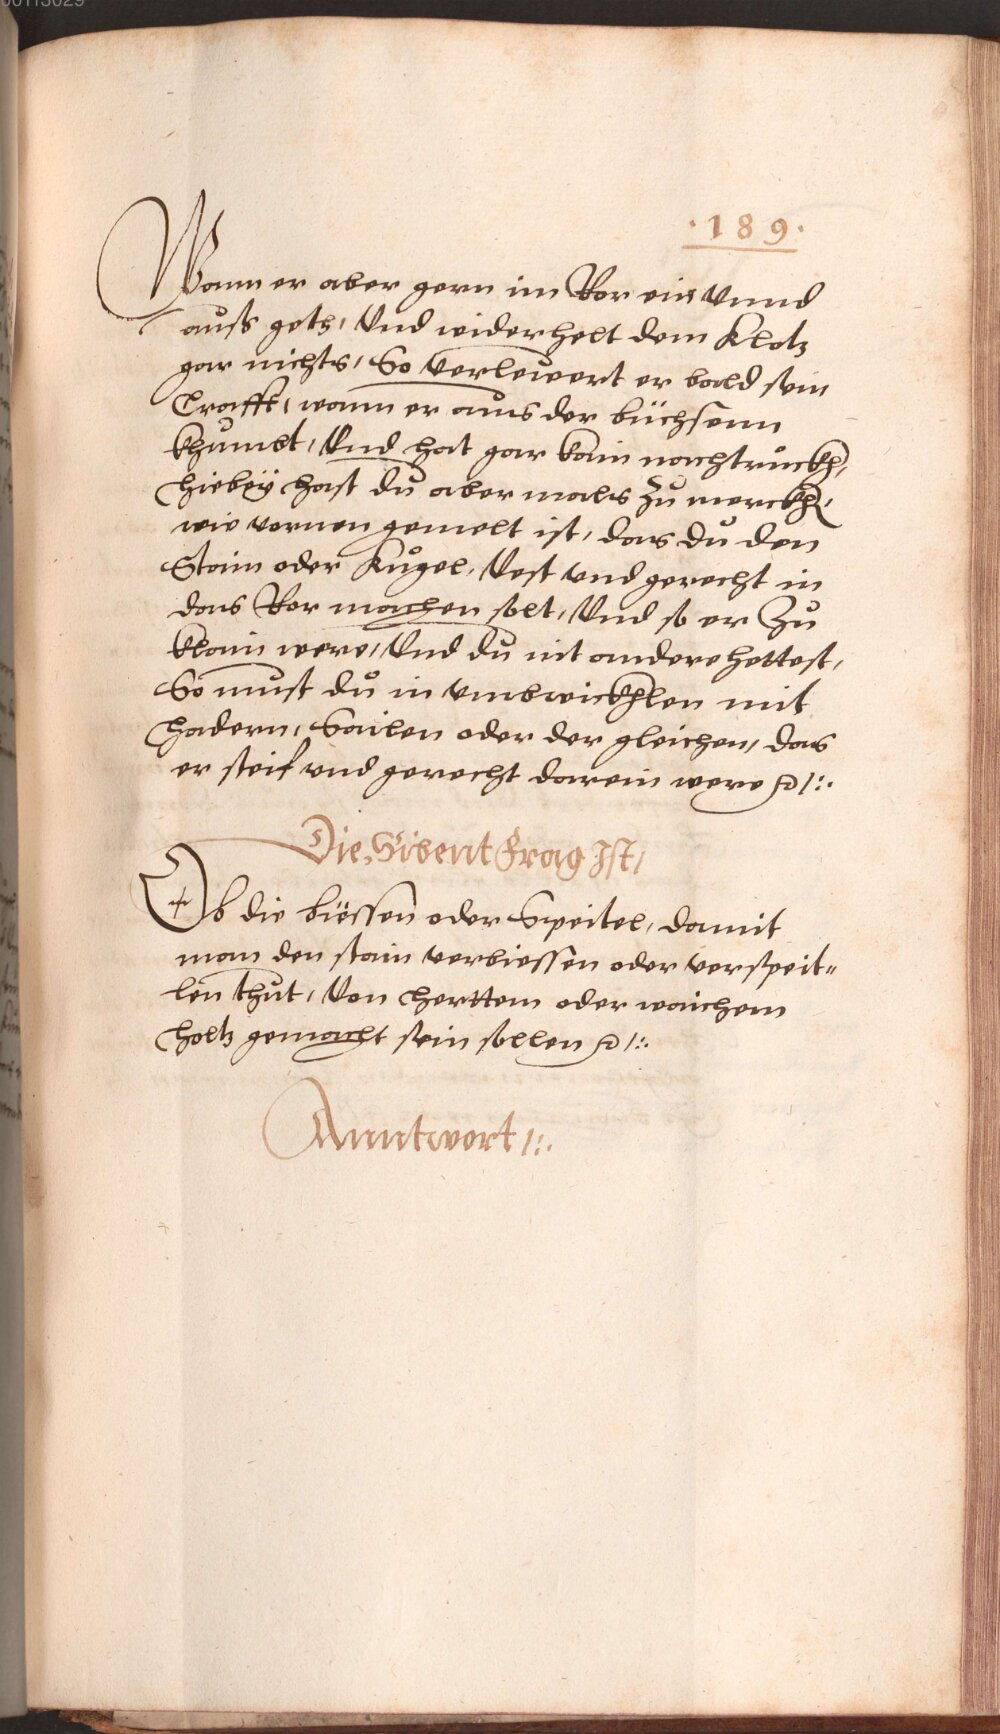 ·189·
Wann er aber gern im Ror ein vnnd
auß geth, Vnd widerhelt dem Klotz
gar nichts, So verleuert er bald sein
Crafft, wann er aus der büchsenn
khumbt, Vnd hat gar kain nachtruckh,
hiebey hast du abermals zu merckh,
wie vornen gemelt ist, das du den
Stain oder Kugel, Vest vnd gerecht in
das Ror machen solt, Vnd so er Zu
klain were, Vnd du nit andere hettest,
So must du in vmbwickhlen mit
hadern, Sailen oder der gleichen, das
er steif vnd gerecht darein were
Die Sibent Frag Ist,
Ob die biessen oder Speitel, damit
man den stain verbiessen oder verspeit-
len thut, Von herttem oder waichem
holtz gemacht sein sollen
Anntwort